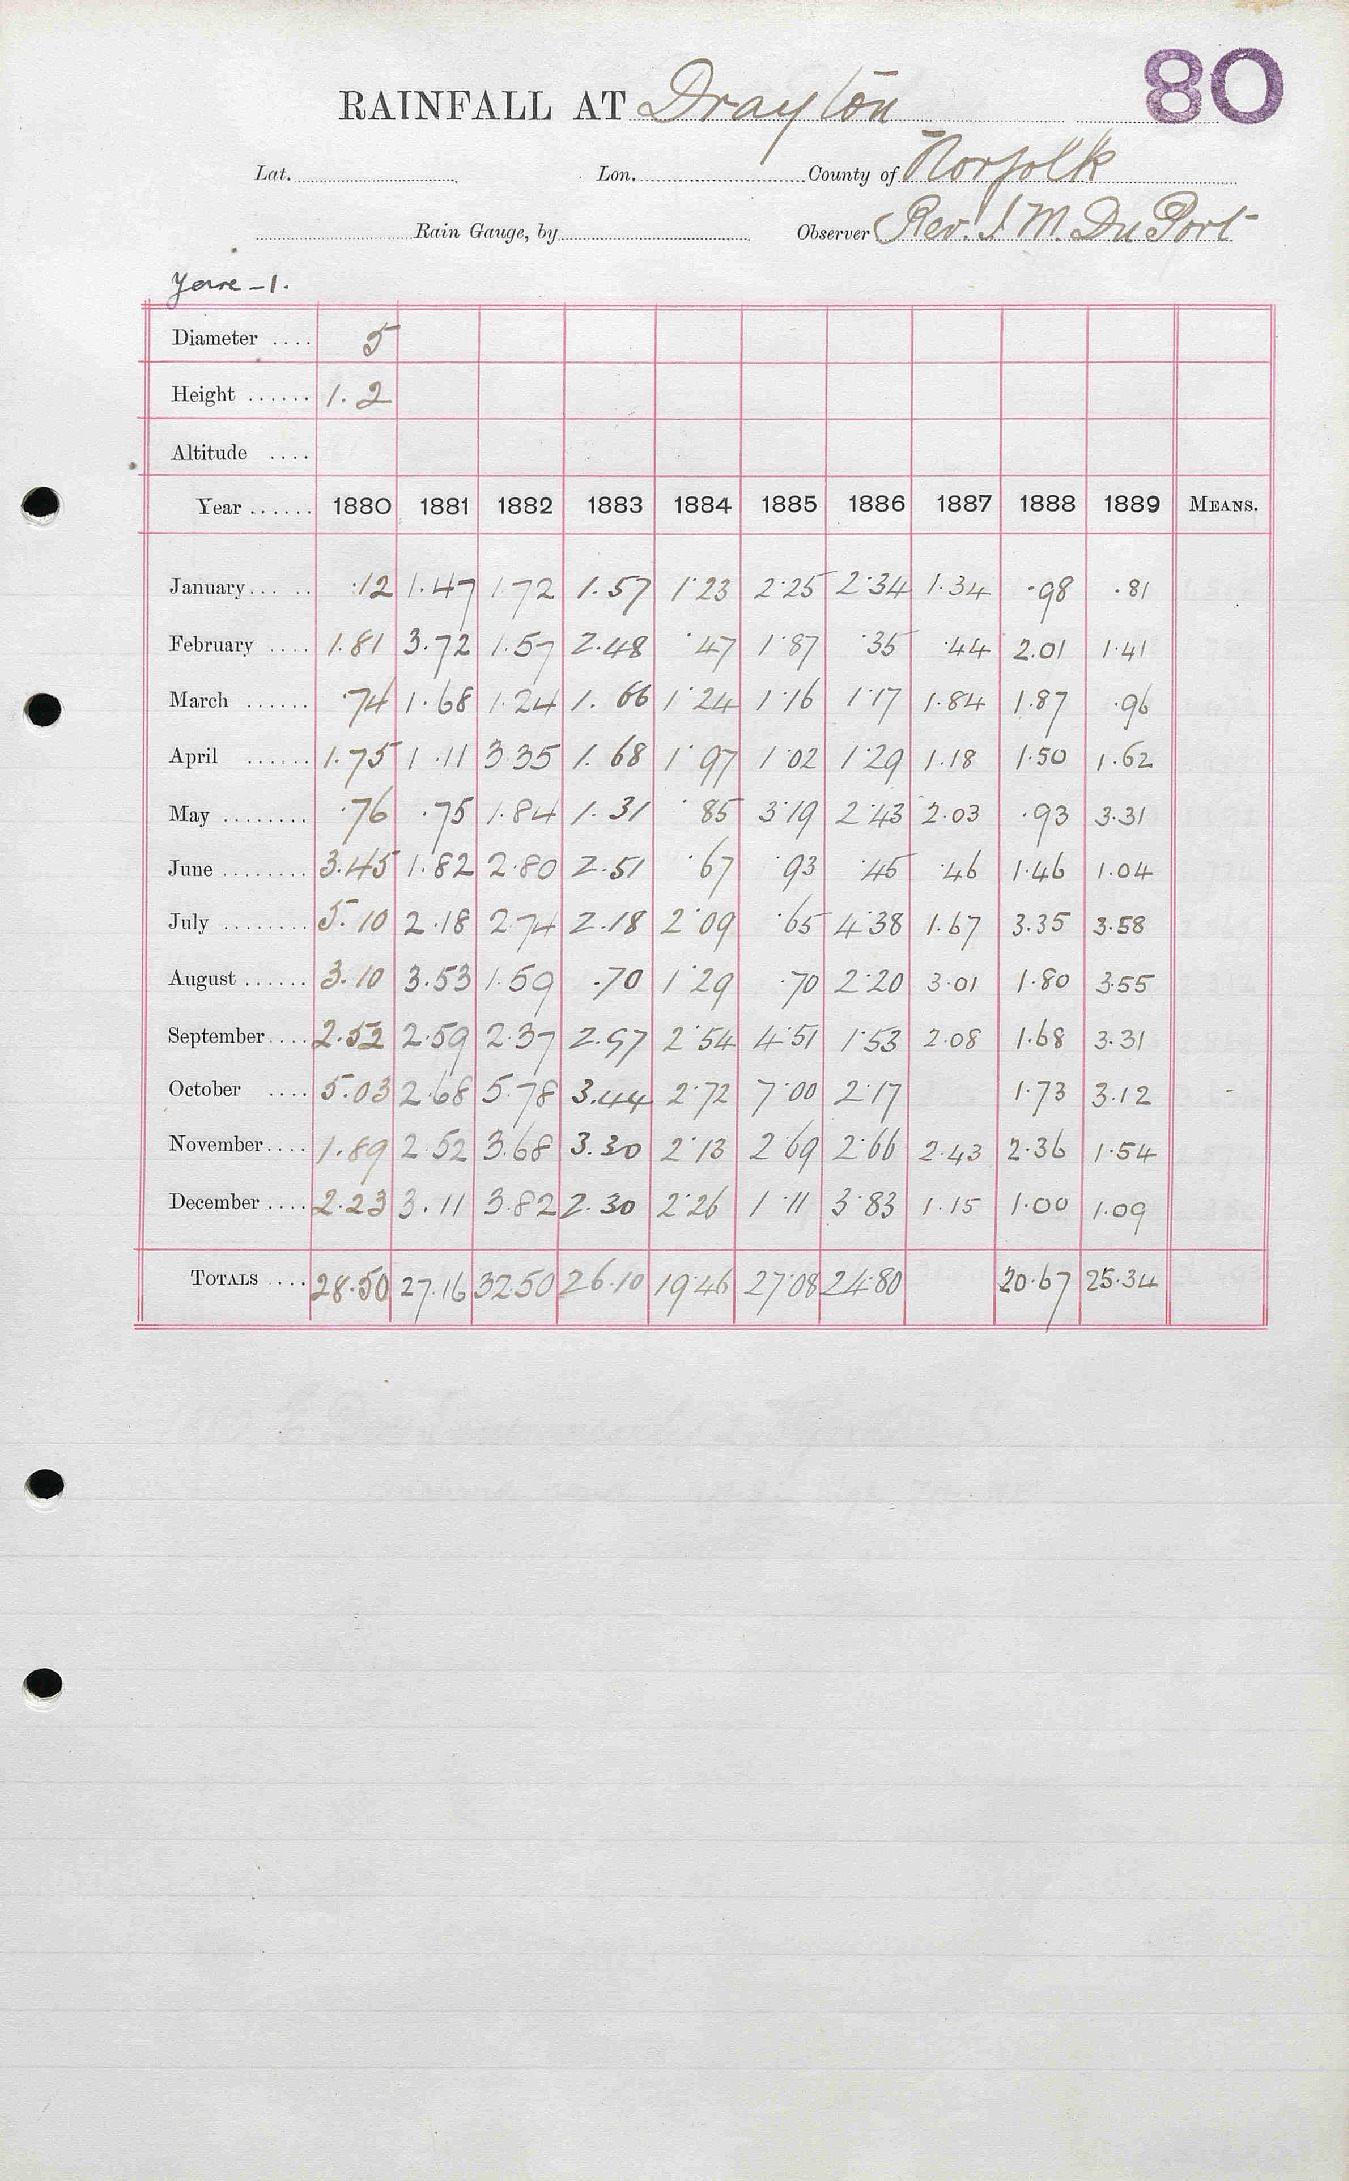 80
RAINFALL AT Drayton
Lat. Lon. County of Norfolk
Rain Gauge, by Observer Rev. J. M. Du Port
Yare - 1.
Diameter .... 5
Height ...... 1.2
Altitude ....
Year ...... 1880 1881 1882 1883 1884 1885 1886 1887 1888 1889 MEANS.
January ... .12 1.47 1.72 1.57 1.23 2.25 2.34 1.34 .98 .81
February .... 1.81 3.72 1.57 2.48 .47 1.87 .35 .44 2.01 1.41
March ...... .74 1.68 1.24 1.66 1.24 1.16 1.17 1.84 1.87 .96
April ...... 1.75 1.11 3.35 1.68 1.97 1.02 1.29 1.18 1.50 1.62
May ........ .76 .75 1.84 1.31 .85 3.19 2.43 2.03 .93 3.31
June ........ 3.45 1.82 2.80 2.51 .67 .93 .45 .46 1.46 1.04
July ........ 5.10 2.18 2.74 2.18 2.09 .65 4.38 1.67 3.35 3.58
August ...... 3.10 3.53 1.59 .70 1.29 .70 2.20 3.01 1.80 3.55
September .... 2.52 2.59 2.37 2.97 2.54 4.51 1.53 2.08 1.68 3.31
October .... 5.03 2.68 5.78 3.44 2.72 7.00 2.17 1.73 3.12
November .... 1.89 2.52 3.68 3.30 2.13 2.69 2.66 2.43 2.36 1.54
December .... 2.23 3.11 3.82 2.30 2.26 1.11 3.83 1.15 1.00 1.09
TOTALS .... 28.50 27.16 32.50 26.10 19.46 27.08 24.80 20.67 25.34